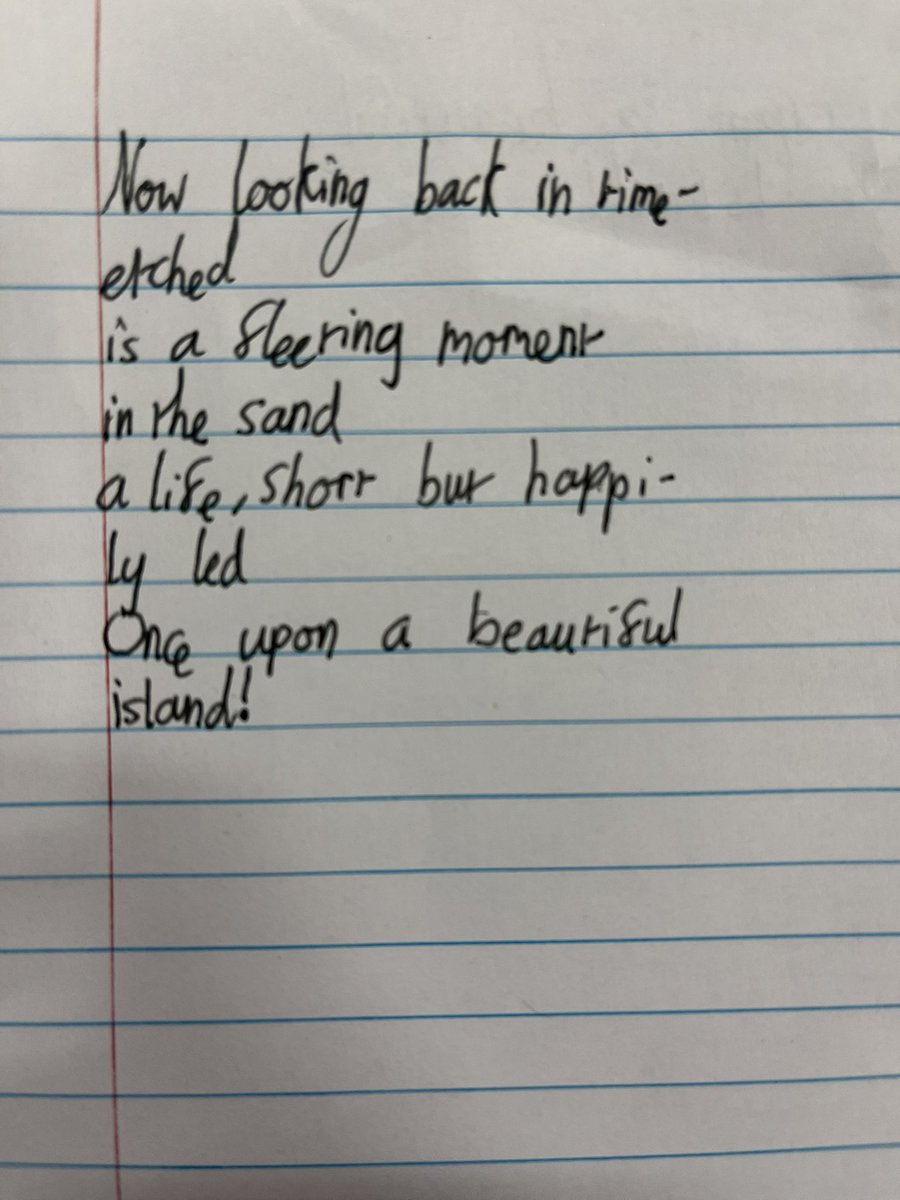 Now looking back in time-
etched
is a fleeting moment
in the sand
a life, short but happi-
ly led
Once upon a beautiful
island!